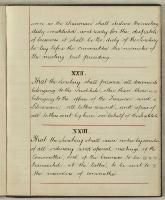 soon as the Chairman shall declare the meeting
duly constituted and ready for the dispatch
of business it shall be the duty of the Secretary
to lay before the Committee the minutes of
the meeting last preceding.
XXII.
That the Secretary shall preserve all documents
belonging to the Institute, other than those
belonging to the office of the Treasurer and
Librarian, all letters received and copies of
all letters sent by him on behalf of the Institute
XXIII
That the Secretary shall
of all ordinary and special meetings of the
Committee, and of the business to be
transacted at the latter, to be sent to
the members of Committee